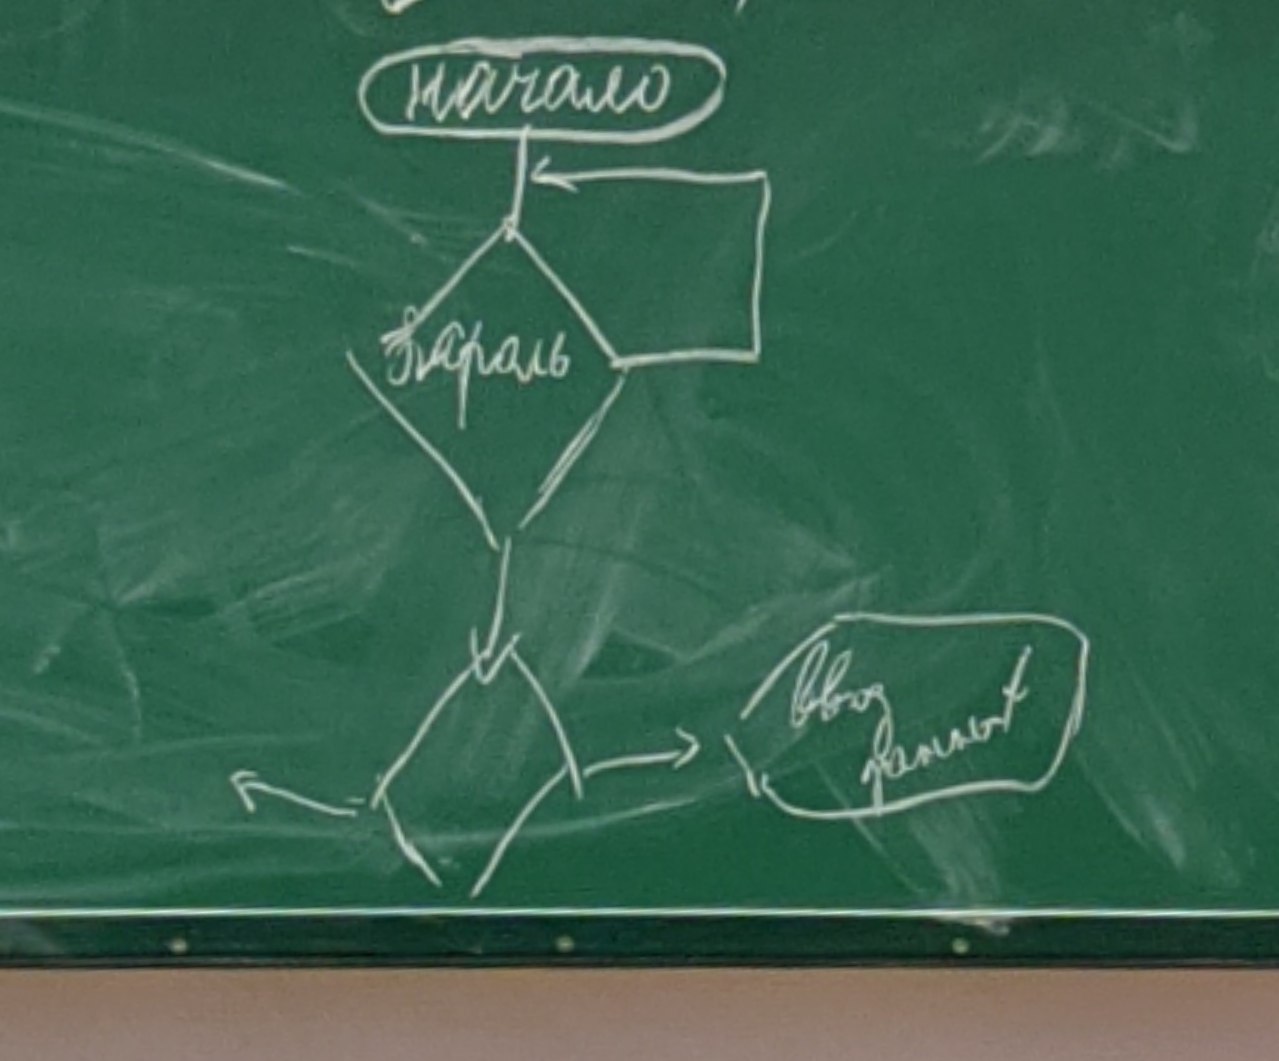 начало
пароль
Ввод
данных